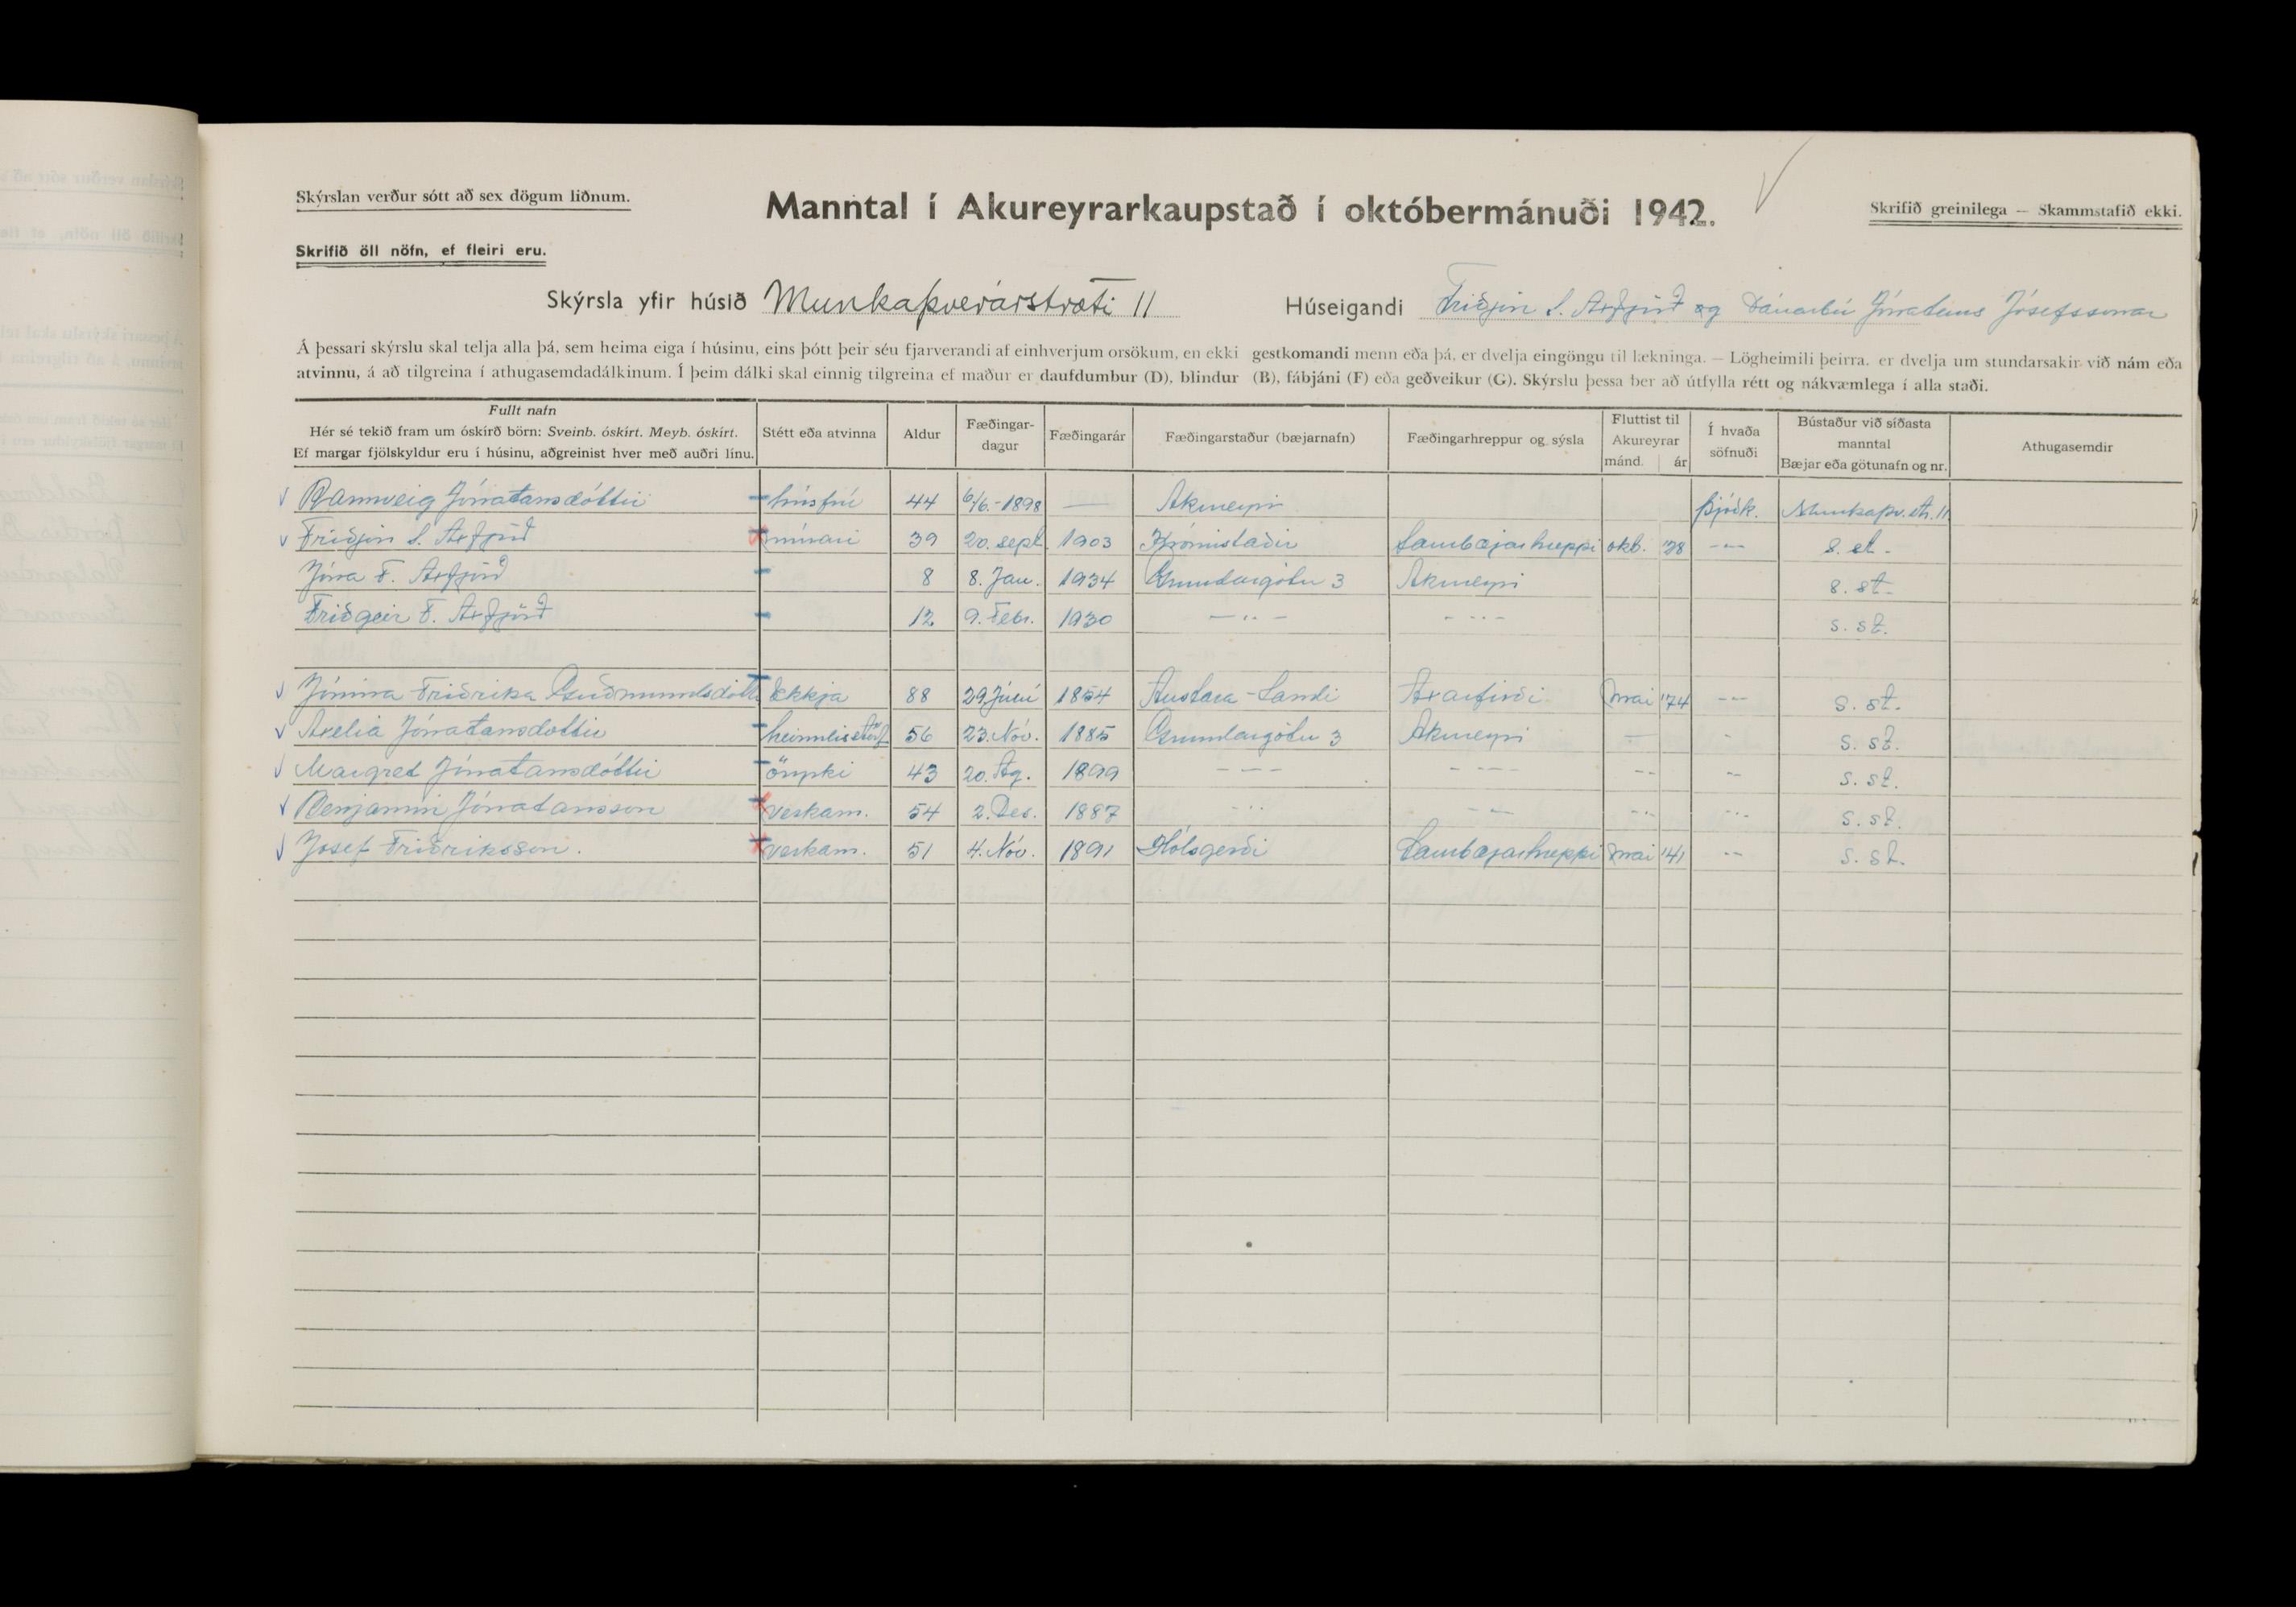 Skýrslan verður sótt að sex dögum liðnum.
Manntal í Akureyrarkaupstað í októbermánuði 1942.
Skrifið greinilega — Skammstafið ekki.
Skrifið öll nöfn, ef fleiri eru.
Skýrsla yfir húsið Munkaþverárstræti 11 Húseigandi Friðjón S. Axfjörð og Dánarbú Jónatans Jósefssonar
Á þessari skýrslu skal telja alla þá, sem heima eiga í húsinu, eins þótt þeir séu fjarverandi af einhverjum orsökum, en ekki gestkomandi menn eða þá, er dvelja eingöngu til lækninga. — Lögheimili þeirra. er dvelja um stundarsakir við nám eða
atvinnu, á að tilgreina í athugasemdadálkinum. Í þeim dálki skal einnig tilgreina ef maður er daufdumbur (D), blindur (B), fábjáni (F) eða geðveikur (G). Skýrslu þessa ber að útfylla rétt og nákvæmlega í alla staði.
Fullt nafn
Hér sé tekið fram um óskírð börn: Sveinb. óskírt. Meyb. óskírt.
Ef margar fjölskyldur eru í húsinu, aðgreinist hver með auðri línu.
Stétt eða atvinna
Aldur
Fæðingar-
dagur
Fæðingarár
Fæðingarstaður (bæjarnafn)
Fæðingarhreppur og sýsla
Fluttist til
Akureyrar
mánd. ár
Í hvaða
söfnuði
Bústaður við síðasta
manntal
Bæjar eða götunafn og nr.
Athugasemdir
Rannveig Jónatansdóttir húsfrú 44 6/6.-1898 — Akureyri Þjóðk. Munkaþv.str. 11
Friðjón S. Axfjörð múrari 39 20. sept. 1903 Saurbæjarhreppi okt. '38 -"- s. st.
Jóna F. Axfjörð 8 8. Jan. 1934 Grundargötu 3 Akureyri s. st.
Friðgeir F. Axfjörð 12 9. Febr. 1930 -"- -"- s. st.
Jónína Friðrika Guðmundsdóttir Ekkja 88 29. Júní 1854 Austara-Landi Axarfirði Maí '74 -"- s. st.
Axelia Jónatansdóttir heimilisstörf 56 23. Nóv. 1885 Grundargötu 3 Akureyri - - s. st.
Margret Jónatansdóttir öryrki 43 20. Ág. 1899 -"- -"- -"- -"- s. st.
Benjamín Jónatansson verkam. 54 2. Des. 1887 -"- -"- -"- -"- s. st.
Josef Friðriksson. verkam. 51 4. Nóv. 1891 Hólsgerði Saurbæjarhreppi Maí '41 -"- s. st.